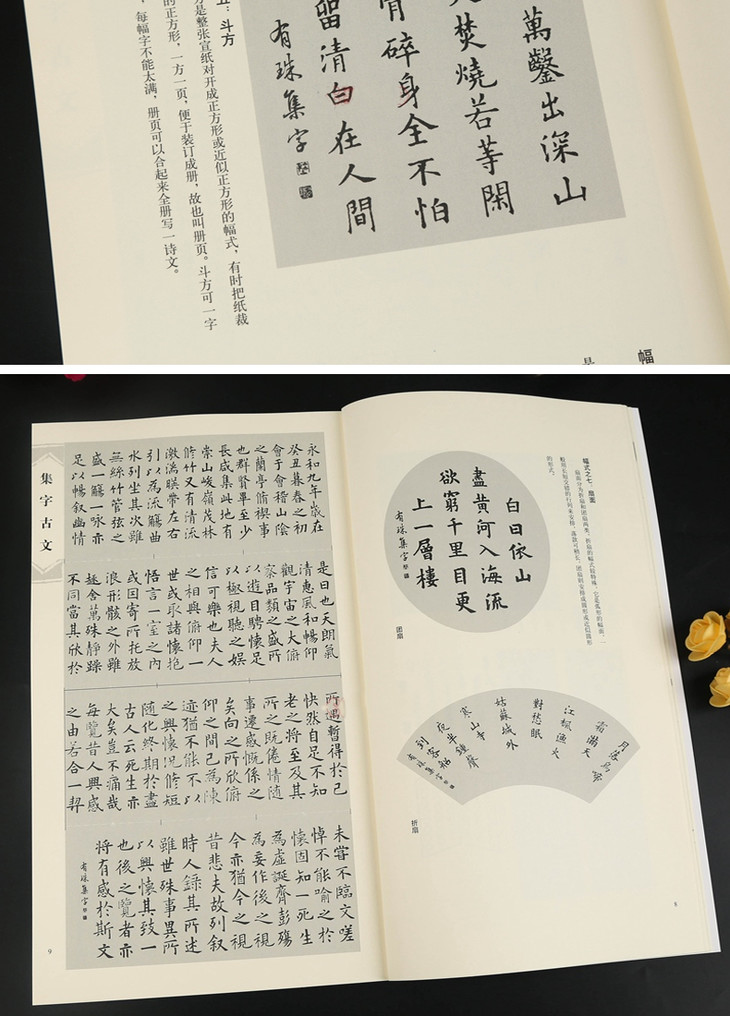 萬鑿出深山
火焚燒若等閑
骨碎身全不怕
留清白在人間
有珠集字
五：斗方
方是整张宣纸对开成正方形或近似正方形的幅式，有时把纸裁
的正方形，一方一页，便于装订成册，故也叫册页。斗方可一字
，每幅字不能太满，册页可以合起来全册写一诗文。
幅
幅式之七：扇面
扇面分为折扇和团扇两类。折扇的幅式较特殊，它是弧形的幅面，一
般用长短交错的行列来安排，落款可稍长。团扇则安排成圆形或近似圆形
的形式。
白日依山
盡黄河入海流
欲窮千里目更
上一層樓
有珠集字
团扇
月落烏啼
霜滿天
江楓漁火
對愁眠
姑蘇城外
寒山寺
夜半鍾聲
到客船
有珠集字
折扇
8
永和九年歲在
癸丑暮春之初
會于會稽山陰
之蘭亭脩禊事
也群賢畢至少
長咸集此地有
崇山峻嶺茂林
脩竹又有清流
激湍暎帶左右
引以為流觴曲
水列坐其次雖
無絲竹管弦之
盛一觴一咏亦
足以暢叙幽情
是日也天朗氣
清惠風和暢仰
觀宇宙之大俯
察品類之盛所
以遊目騁懷足
以極視聽之娱
信可樂也夫人
之相與俯仰一
世或取諸懷抱
悟言一室之内
或因寄所托放
浪形骸之外雖
趣舍萬殊静躁
不同當其欣於
所遇暫得於己
快然自足不知
老之將至及其
所之既倦情随
事遷感慨係之
矣向之所欣俯
仰之間已為陳
迹猶不能不以
之興懷况脩短
随化終期於盡
古人云死生亦
大矣豈不痛哉
每覽昔人興感
之由若合一契
未嘗不臨文嗟
悼不能喻之於
懷固知一死生
為虚誕齊彭殤
為妄作後之視
今亦猶今之視
昔悲夫故列叙
時人錄其所述
雖世殊事異所
以興懷其致一
也後之覽者亦
將有感於斯文
有珠集字
集字古文
9